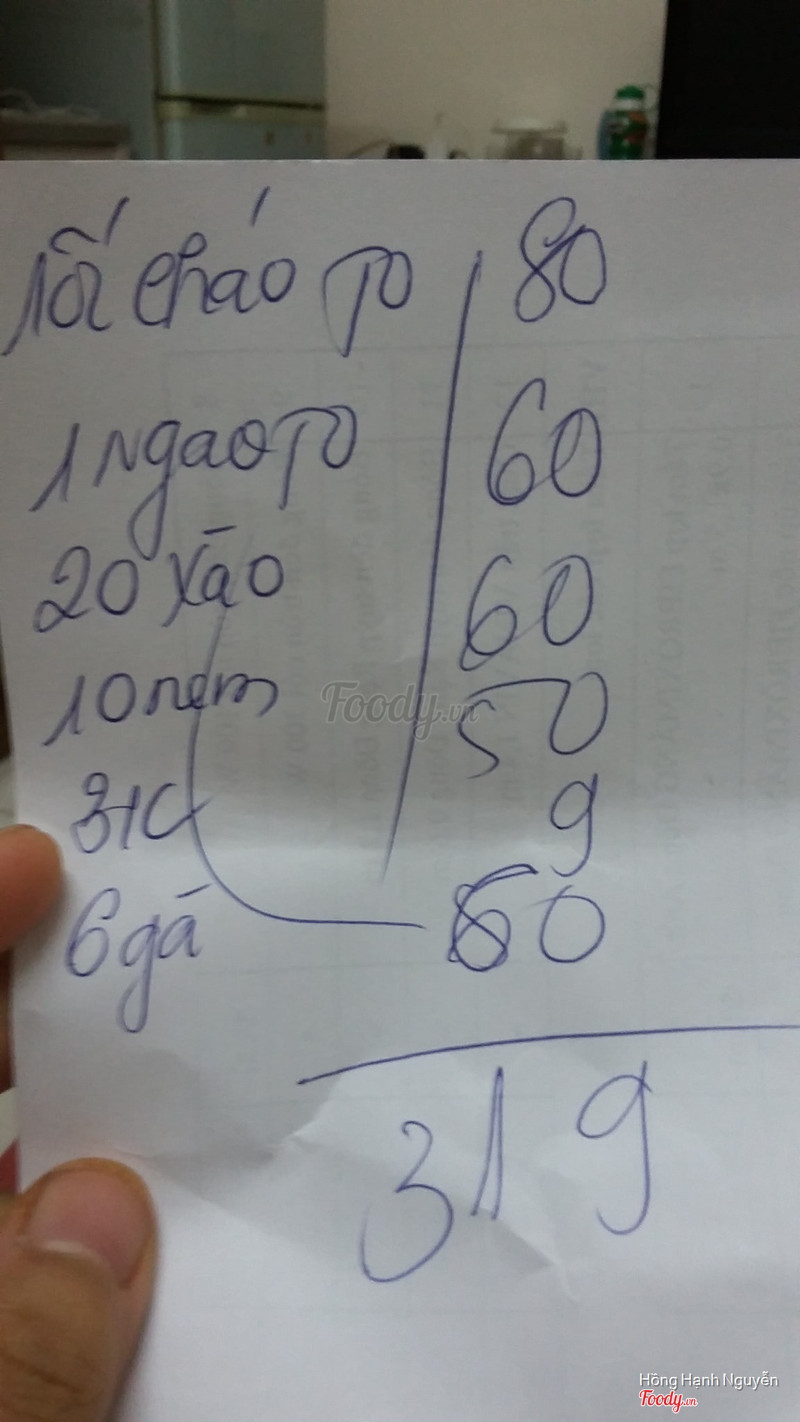 1 nồi cháo TO 80
1 Ngao TO 60
20 xào 60
10 nem 50
3TC 9
6 gá 60
319
Foody.vn
Hồng Hạnh Nguyễn
Foody.vn